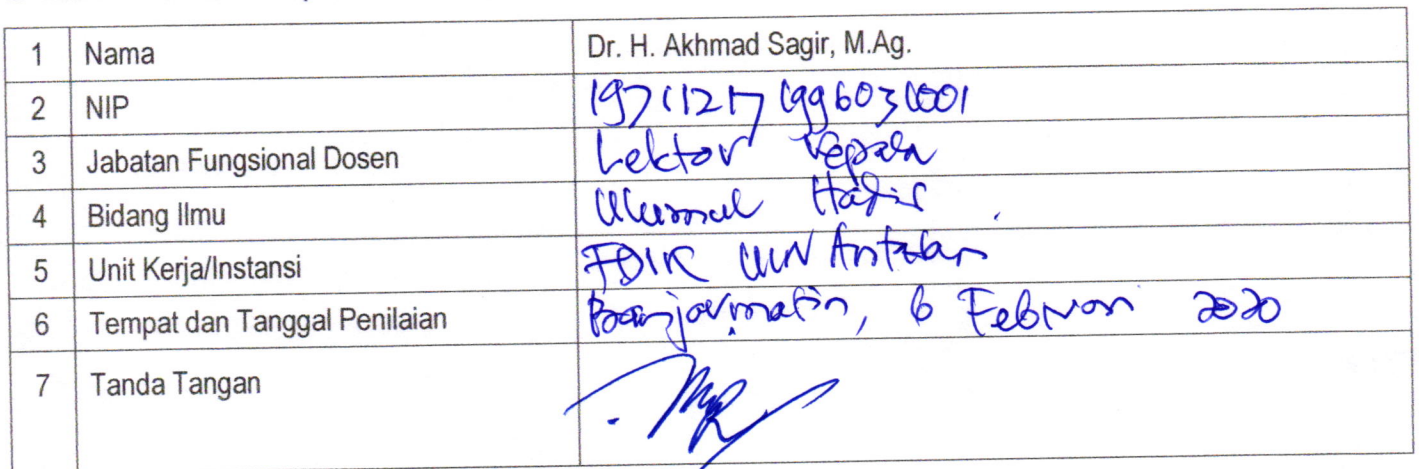 1 Nama Dr. H. Akhmad Sagir, M.Ag.
2 NIP 197112171996031001
3 Jabatan Fungsional Dosen Lektor Kepala
4 Bidang Ilmu Ulumul Hadis
5 Unit Kerja/Instansi FDIK UIN Antasari
6 Tempat dan Tanggal Penilaian Banjarmasin, 6 Februari 2020
7 Tanda Tangan